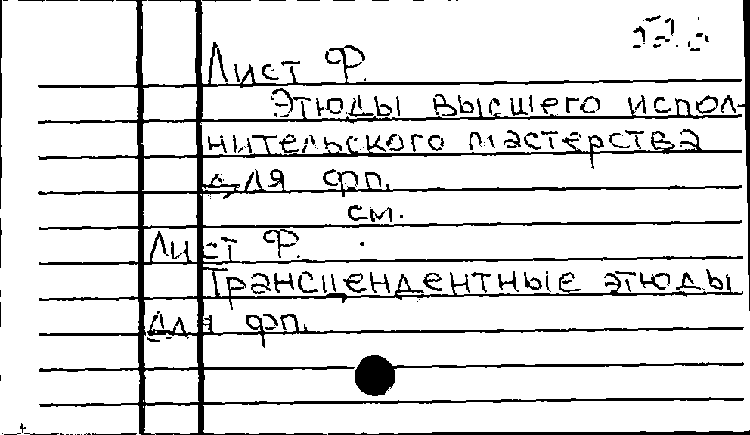 Лист Ф.
Этюды высшего испол-
нительского мастерства
для фп.
см.
Лист Ф.
Трансцендентные этюды
для фп.